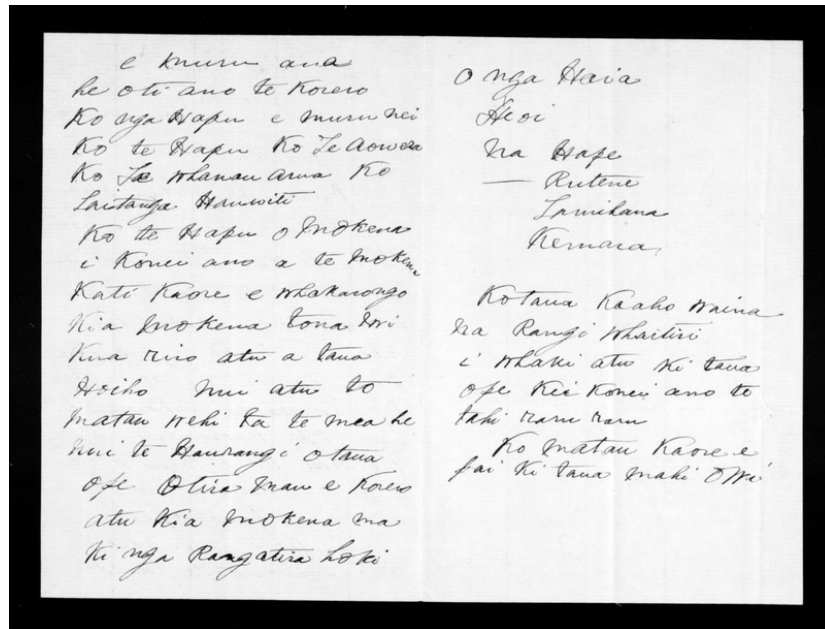 e muru ana
he oti ano te Korero
Ko nga Hapu e muru nei
Ko te Hapu Ko Te Aowera
Ko Te Whanau arua Ko
Taitanga Hauwiti
Ko te Hapu o Mokena
i Konei ano a te Mokena
Kati Kaore e Whakarongo
Kia Mokena tona Iwi
Kua riro atu a taua
Hoiho nui atu to
matau wehi ta te mea he
nui te Haurangi o taua
ope Otira mau e Korero
atu Kia Mokena ma
Ki nga Rangatira hoki
O nga Haia
Heoi
Na Hape
— Rutene
Tamihana
Kemara
Ko taua Kaaho Waina
na Rangi Whaitiri
i Whaki atu Ki taua
ope Kei Konei ano te
tahi raru raru
Ko matau Kaore e
pai Ki taua mahi